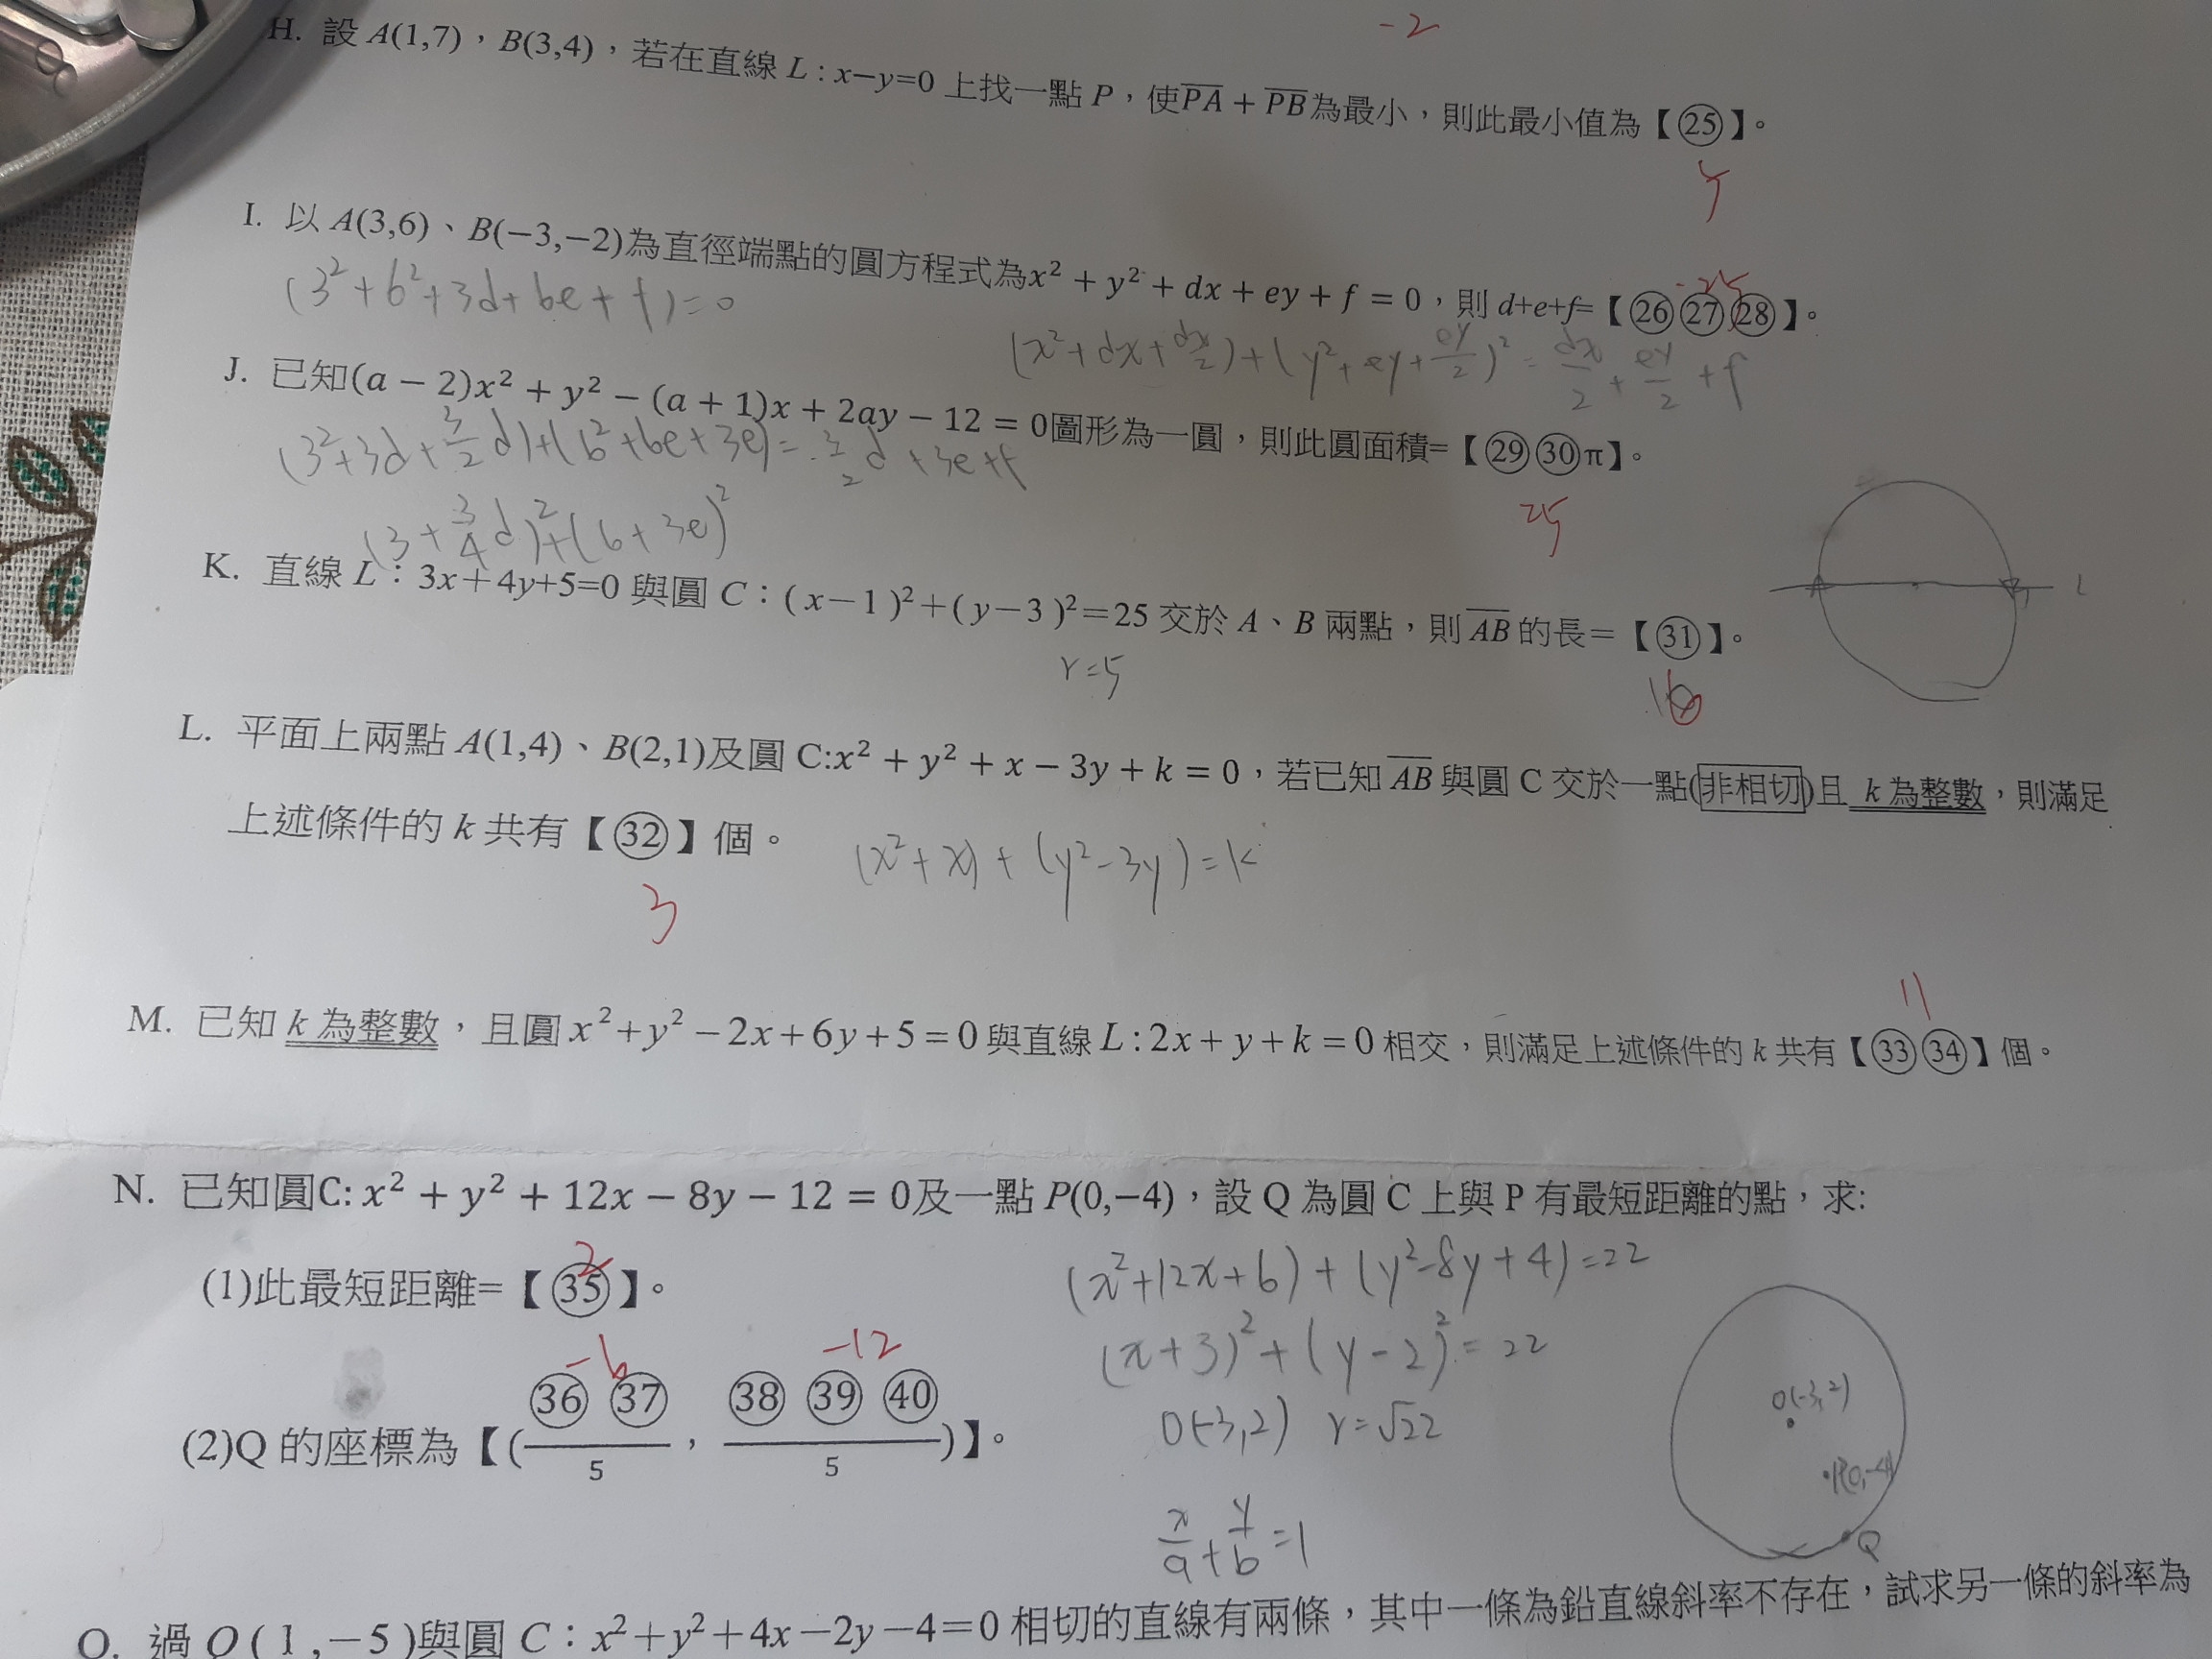 -2
H. 設 A(1,7),B(3,4),若在直線 L : x−y=0 上找一點 P,使PA + PB為最小,則此最小值為【㉕】。
5
I. 以 A(3,6)、B(−3,−2)為直徑端點的圓方程式為x² + y² + dx + ey + f = 0,則 d+e+f=【㉖㉗㉘】。
-25
(3²+6²+3d+6e+f)=0
(x²+dx+dx/2)+(y²+ey+ey/2)²=dx/2+ey/2+f
J. 已知(a − 2)x² + y² − (a + 1)x + 2ay − 12 = 0圖形為一圓,則此圓面積=【㉙㉚π】。
(3²+3d+3/2d)+(6²+6e+3e)=3/2d+3e+f
25
(3+3/4d)²+(6+3e)²
K. 直線 L:3x+4y+5=0 與圓 C:(x−1)²+(y−3)²=25 交於 A、B 兩點,則 AB 的長=【㉛】。
L
r=5
6
L. 平面上兩點 A(1,4)、B(2,1)及圓 C:x² + y² + x − 3y + k = 0,若已知 AB 與圓 C 交於一點(非相切)且 k 為整數,則滿足
上述條件的 k 共有【㉜】個。
(x²+x)+(y²-3y)=k
3
11
M. 已知 k 為整數,且圓 x²+y²−2x+6y+5=0 與直線 L:2x+y+k=0 相交,則滿足上述條件的 k 共有【㉝㉞】個。
N. 已知圓C: x² + y² + 12x − 8y − 12 = 0及一點 P(0,−4),設 Q 為圓 C 上與 P 有最短距離的點,求:
2
(1)此最短距離=【㉟】。
(x²+12x+6)+(y²-8y+4)=22
(x+3)²+(y-2)²=22
-6 -12
(2)Q 的座標為【(㊱㊲/5,㊳㊴㊵/5)】。
O(-3,2) r=√22
O(-3,2)
P(0,-4)
Q
x/a+y/b=1
O. 過 Q(1,−5)與圓 C:x²+y²+4x−2y−4=0 相切的直線有兩條,其中一條為鉛直線斜率不存在,試求另一條的斜率為